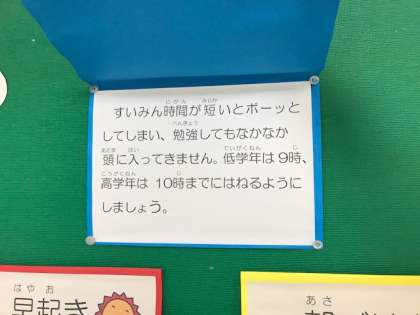 すいみん時間が短いとボーッと
してしまい、勉強してもなかなか
頭に入ってきません。低学年は9時、
高学年は 10時までにはねるように
しましょう。
早起き